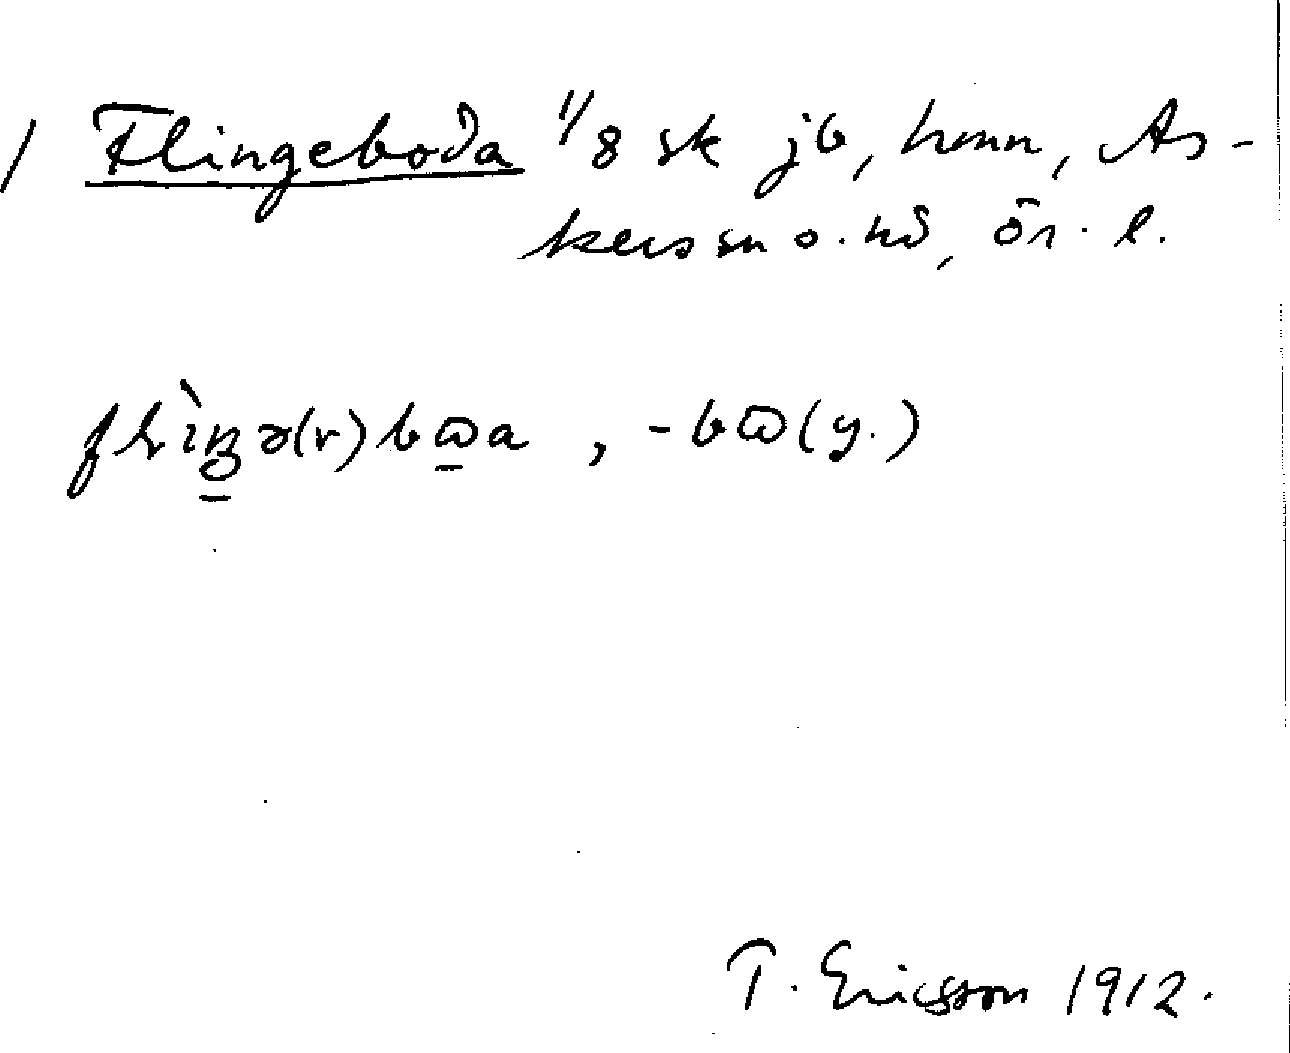 / Flingeboda 1/8 sk jb, hmn, As-
kers sn o. hd, Ör. l.
-bω(y.)
T. Ericsson 1912.